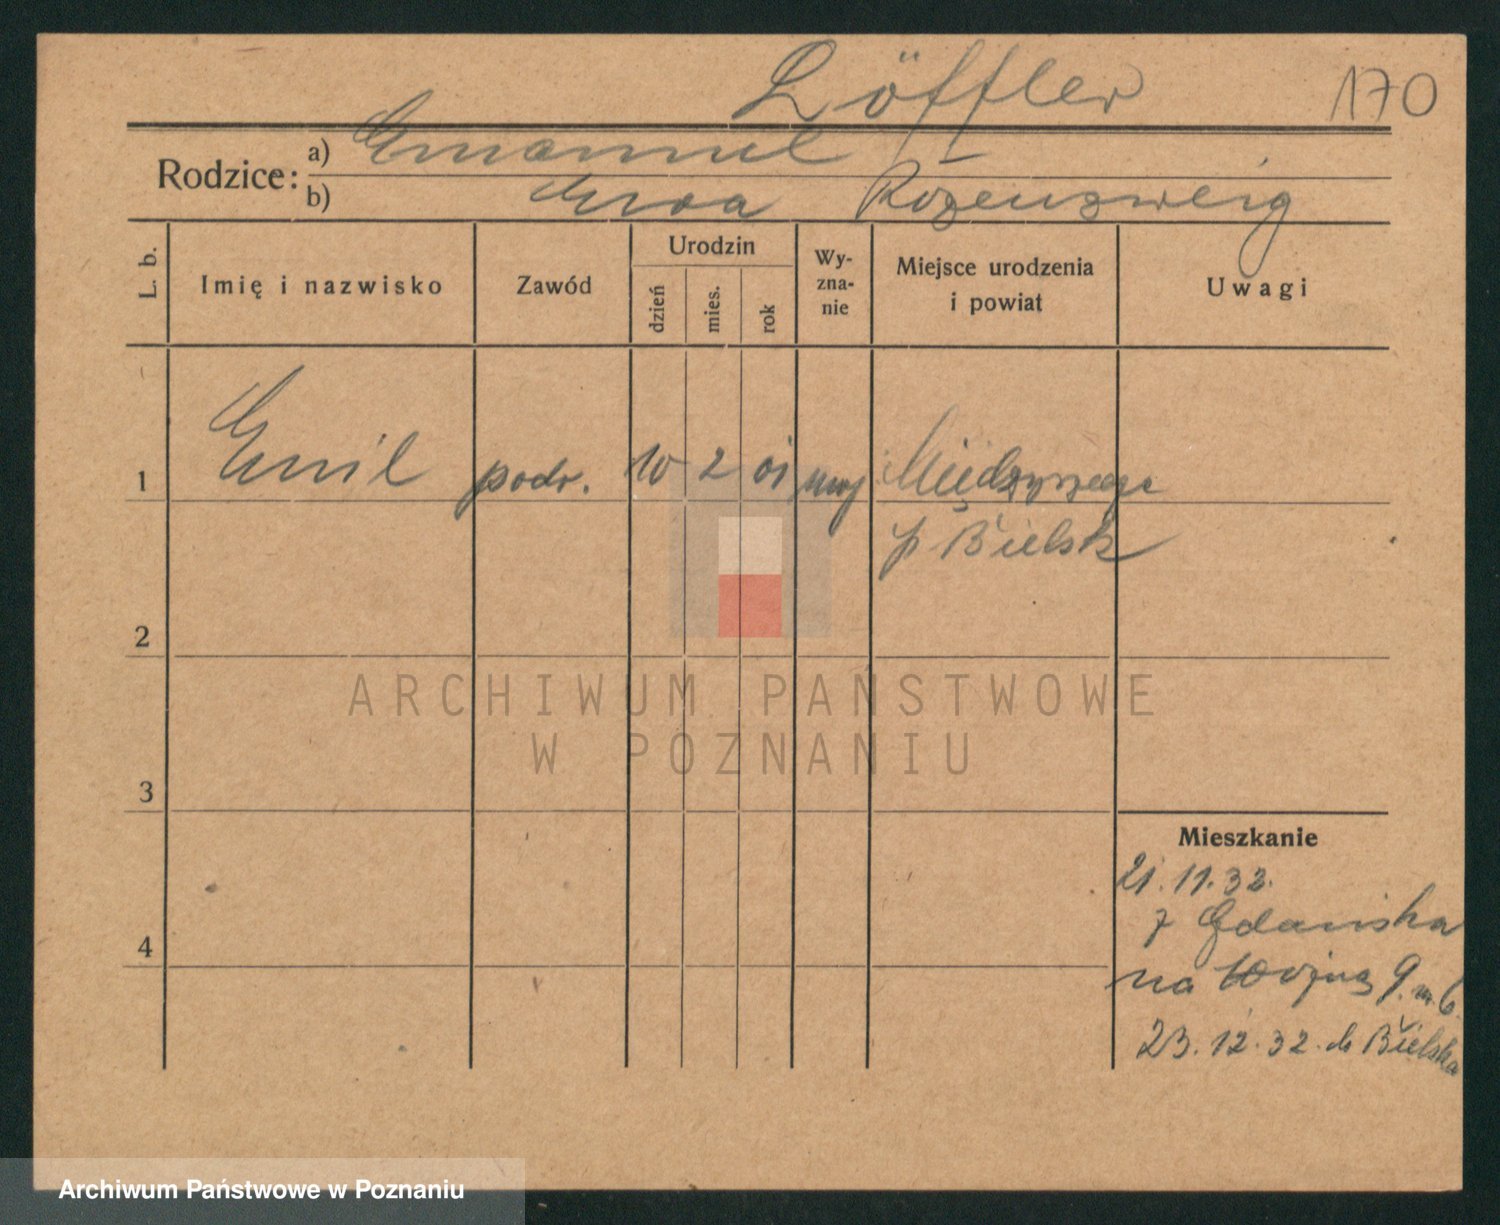 Löffler 170
Rodzice: a) Emanuel
b) Ewa Rozenzweig
L. b.
Imię i nazwisko
Zawód
Urodzin
dzień
mies.
rok
Wy-
zna-
nie
Miejsce urodzenia
i powiat
Uwagi
1 Emil podr. 10 2 01 mojż Międzyrzecze
p Bielsk
2
3
4
Mieszkanie
21.11.32.
z Gdańska
na 9. m. 6.
23.12.32. do Bielska
ARCHIWUM PAŃSTWOWE
W POZNANIU
Archiwum Państwowe w Poznaniu